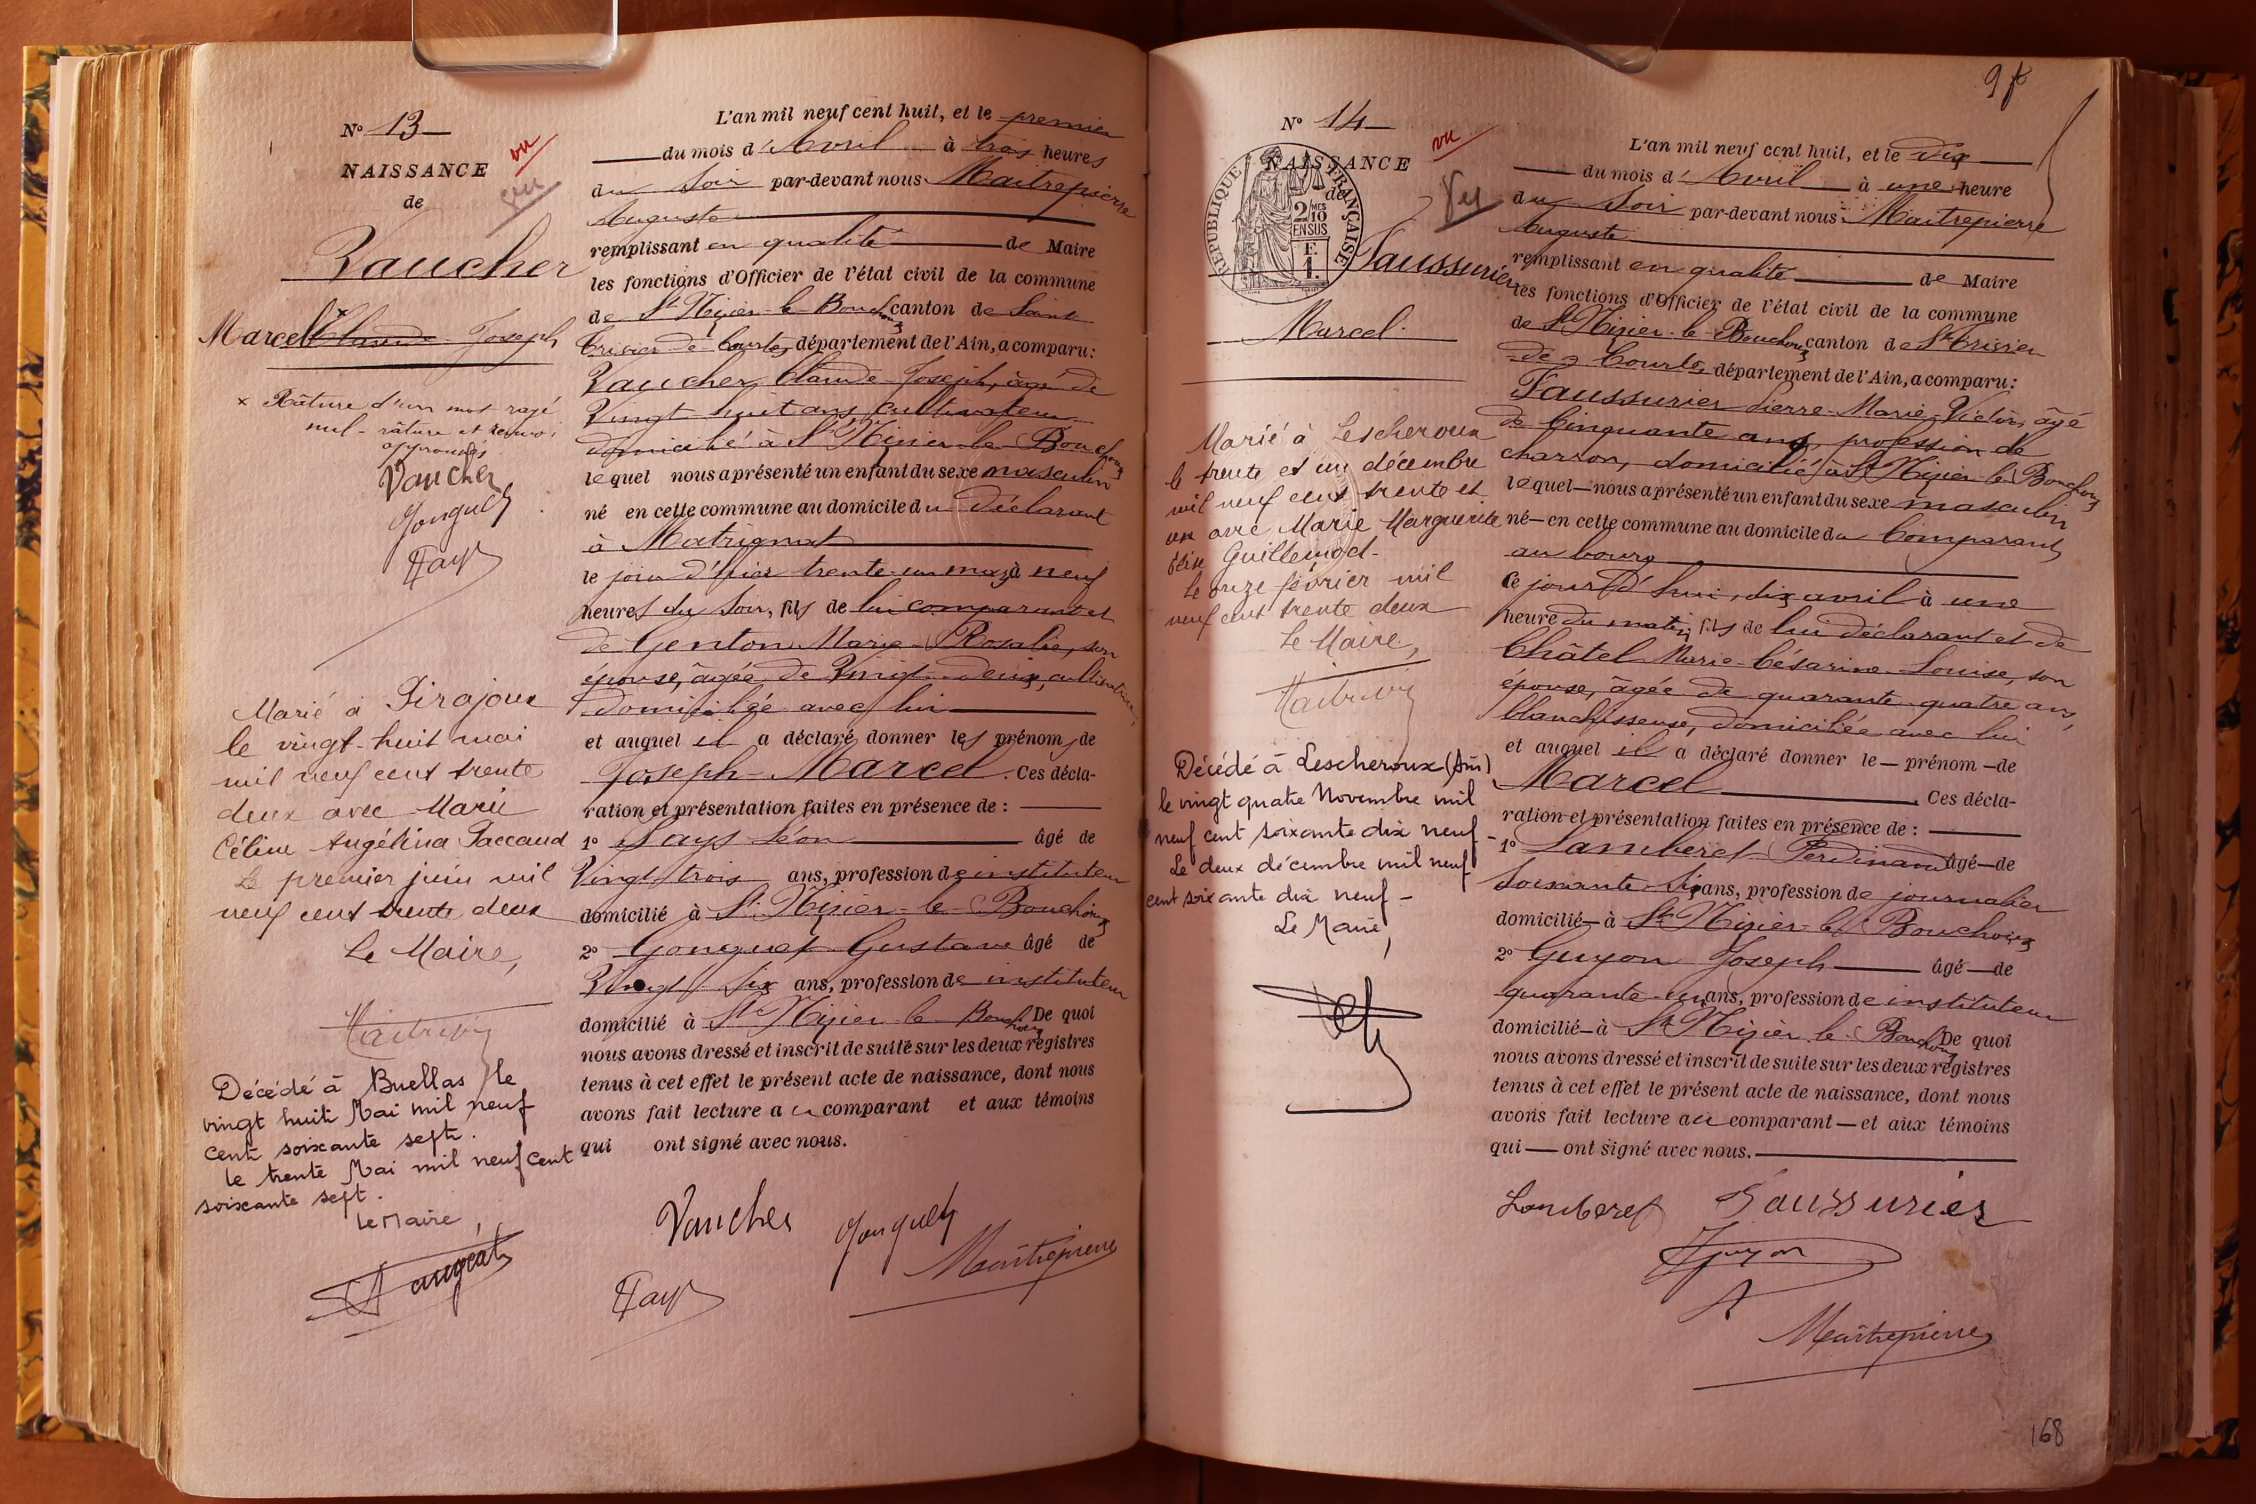 N° 13
NAISSANCE
de
Vaucher
Marcel Claude Joseph
vu
× Râture d'un mot rayé
nul - râture et renvoi
approuvés
Vaucher
Gonguet
Marié à Pirajoux
le vingt-huit mai
mil neuf cent trente
deux avec Marie
Céline Angélina Paccaud
Le premier juin mil
neuf cent trente deux
Le Maire,
Décédé à Buellas le
vingt huit Mai mil neuf
cent soixante sept.
le trente Mai mil neuf cent
soixante sept.
Le Maire,
L'an mil neuf cent huit, et le premier
du mois d'Avril à trois heures
du Soir par-devant nous Maitrepierre
Auguste
remplissant en qualité de Maire
les fonctions d'Officier de l'état civil de la commune
de St Nizier-le-Bouchoux canton de Saint
Trivier de Courtes, département de l'Ain, a comparu:
Vaucher Claude Joseph, âgé de
Vingt huit ans, cultivateur
domicilié à St Nizier-le-Bouchoux
lequel nous a présenté un enfant du sexe masculin
né en cette commune au domicile du déclarant
à Matrignat
le jour d'hier trente-un mars à neuf
heures du Soir, fils de lui comparant et
de Genton Marie-Rosalie, son
épouse, âgée de Vingt-deux, cultivatrice,
domiciliée avec lui
et auquel il a déclaré donner les prénoms de
Joseph-Marcel. Ces décla-
ration et présentation faites en présence de :
1° Says Léon âgé de
Vingt trois ans, profession de instituteur
domicilié à St Nizier-le-Bouchoux
2° Gonguet Gustave âgé de
Vingt Six ans, profession de instituteur
domicilié à St Nizier le Bouchoux De quoi
nous avons dressé et inscrit de suite sur les deux registres
tenus à cet effet le présent acte de naissance, dont nous
avons fait lecture au comparant et aux témoins
qui ont signé avec nous.
Vaucher Gonguet
Maitrepierre
9
N° 14
NAISSANCE
de
RÉPUBLIQUE FRANÇAISE
2 MES
10
EN SUS
Faussurier
Marcel.
vu
Vu
Marié à Lescheroux
le trente et un décembre
mil neuf cent trente et
un avec Marie Marguerite
Guillemot.
Le onze février mil
neuf cent trente deux
Le Maire,
Décédé à Lescheroux (Ain)
le vingt quatre Novembre mil
neuf cent soixante dix neuf -
Le deux décembre mil neuf
cent soixante dix neuf -
Le Maire,
L'an mil neuf cent huit, et le dix
du mois d'Avril à une heure
du Soir par-devant nous Maitrepierre
Auguste
remplissant en qualité de Maire
les fonctions d'Officier de l'état civil de la commune
de St Nizier-le-Bouchoux canton de St Trivier
de Courtes, département de l'Ain, a comparu:
Faussurier Pierre-Marie-Victor, âgé
de Cinquante ans, profession de
charron, domicilié à St Nizier-le-Bouchoux
lequel nous a présenté un enfant du sexe masculin
né en cette commune au domicile du Comparant
au bourg
ce jour d'hui, dix avril à une
heure du matin, fils de lui déclarant et de
Châtel Marie-Césarine-Louise, son
épouse, âgée de quarante-quatre ans,
blanchisseuse, domiciliée avec lui
et auquel il a déclaré donner le prénom de
Marcel. Ces décla-
ration et présentation faites en présence de :
1° Lamberet Ferdinand âgé de
Soixante-Six ans, profession de journalier
domicilié à St Nizier-le-Bouchoux
2° Guyon Joseph âgé de
quarante-un ans, profession de instituteur
domicilié à St Nizier le Bouchoux De quoi
nous avons dressé et inscrit de suite sur les deux registres
tenus à cet effet le présent acte de naissance, dont nous
avons fait lecture au comparant et aux témoins
qui ont signé avec nous.
Lamberet Faussurier
Guyon
Maitrepierre
168